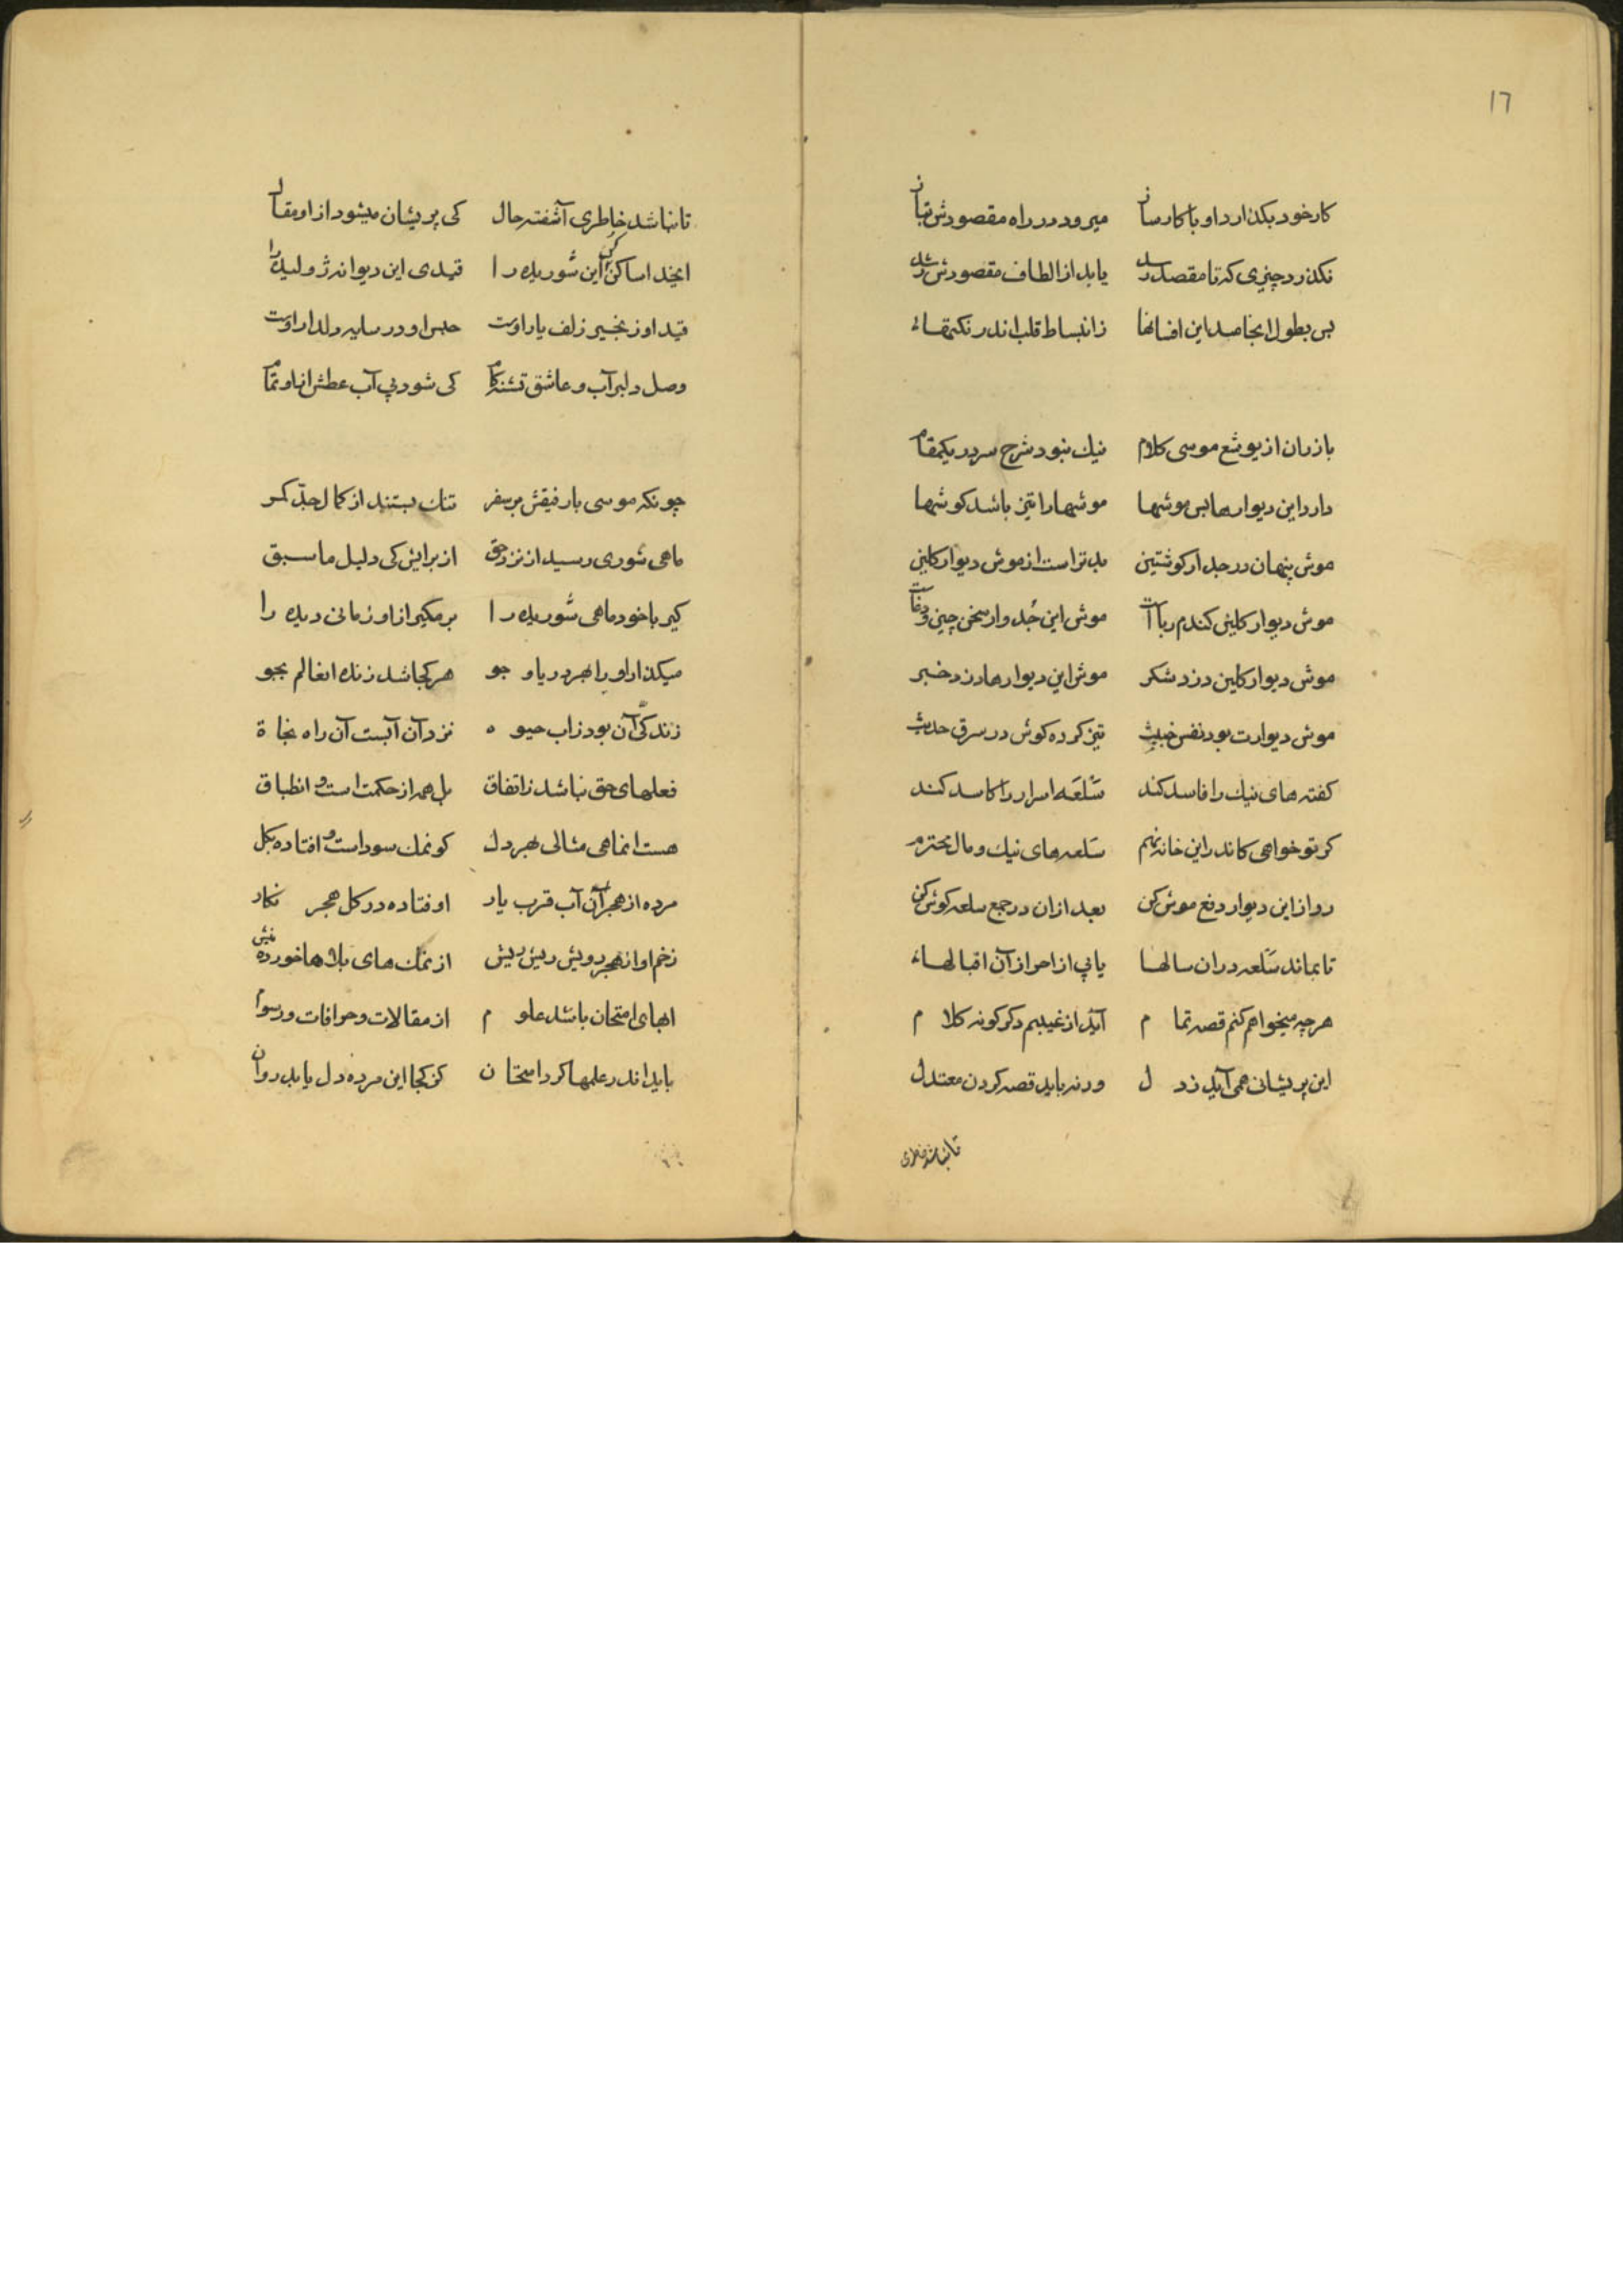 ١٦
کار خود بکذارد او با کارساز میرود در راه مقصودش بناز
نکذرد چیزی که تا مقصد رسد یابد از الطاف مقصودش رشد
بس بطول انجامد این افسانها ز انبساط قلب اندر نکتها
باز ران از یوشع موسی کلام نیك نبود شرح سر در یکمقام
دارد این دیوارها بس موشها موشها را تیز باشد کوشها
موش پنهان در جدار کوشتین بدتر است از موش دیوار کلین
موش دیوار کلین کندم ربا آت موش این جدوار سخن چین
موش دیوار کلین دزد شکر موش این دیوارها دزد خبر
موش دیوارت بود نفس خبیث تیز کرده کوش در سرق حدیث
کفته های نیك را فاسد کند سَلعَه اسرار را کاسد کند
کر تو خواهی کاندر این خانه نهم سَلعه های نیك و مال محترم
رو از این دیوار دفع موش کن بعد از ان در جمع سلعه کوش کن
تا بماند سَلعه در ان سالها یابی از احراز آن اقبالها
هر چه میخواهم کنم قصه تمام آید از غیبم دکر کونه کلام
این پریشانی همی آید ز دل ورنه باید قصه کردن معتدل
تا نباشد خاطری
تا نباشد خاطری آشفته حال کی پریشان میشود از او مقال
ایخدا ساکن کن این شوریده را قیدی این دیوانه ژولیده را
قید او زنجیر زلف یار اوست حبس او در سایه دلدار اوست
وصل دلبر آب و عاشق تشنه کام کی شود بی آب عطش از او تمام
چونکه موسی با رفیقش بر سفر تنك بستند از کمال جدّ کمر
ماهی شوری رسید از نزد حق از برایش کی دلیل ما سبق
کیر با خود ماهی شوریده را بر مکیر از او زمانی دیده را
میکذار او را بهر دریا و جو هر کجا شد زنده انعالم بجو
زندکی آن بود ز اب حیوه نزد آن آبست آن راه نجاة
فعلهای حق نباشد ز اتفاق بل همه از حکمت است و انطباق
هست انماهی مثالی بهر دل کو نمك سود است و افتاده بکل
مرده از هجر آن آب قرب یار اوفتاده در کل هجر نکار
زخم او از هجر رویش ریش ریش از نمك های بلاها خورده نیش
ابهای امتحان باشد علوم از مقالات و حرافات و رسوم
باید اندر علمها کرد امتحان کز کجا این مرده دل یابد روان